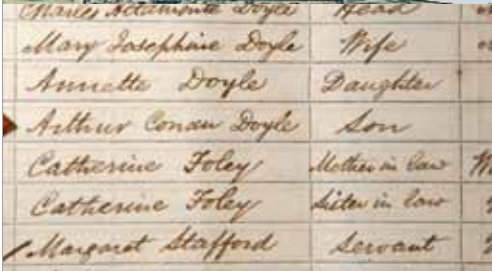 Charles Altamonte Doyle Head
Mary Josephine Doyle Wife
Annette Doyle Daughter
Arthur Conan Doyle Son
Catherine Foley Mother in law
Catherine Foley Sister in law
Margaret Stafford Servant